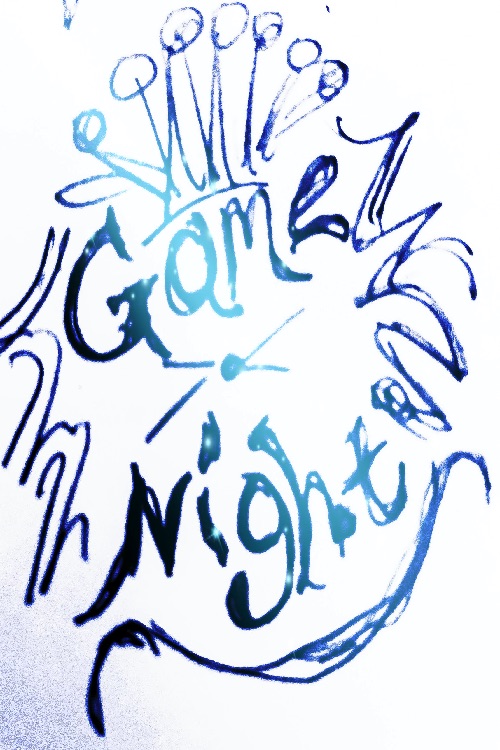 Game
Night